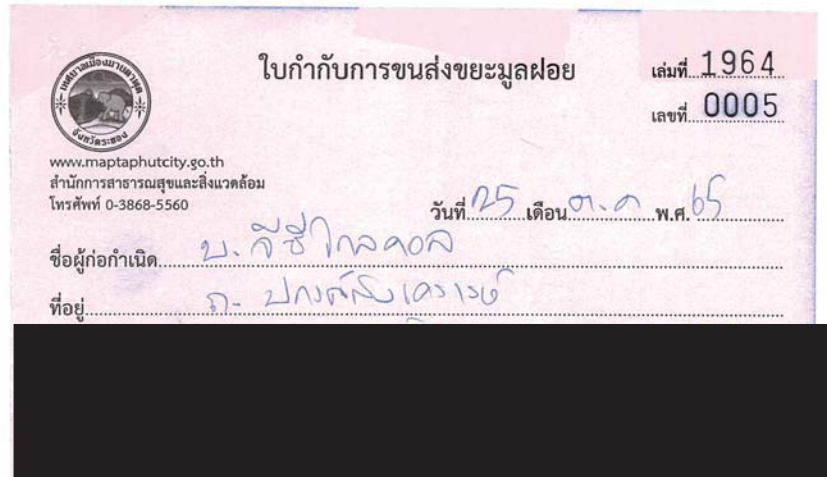 เทศบาลเมืองมาบตาพุด
จังหวัดระยอง
ใบกำกับการขนส่งขยะมูลฝอย
เล่มที่ 1964
เลขที่ 0005
www.maptaphutcity.go.th
สำนักการสาธารณสุขและสิ่งแวดล้อม
โทรศัพท์ 0-3868-5560
วันที่ 25 เดือน ต.ค พ.ศ. 65
ชื่อผู้ก่อกำเนิด บ. จีซี ไกลคอล
ที่อยู่ ถ. ปกรณ์สงเคราะห์